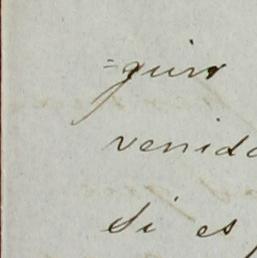 =guir
venido
Si es